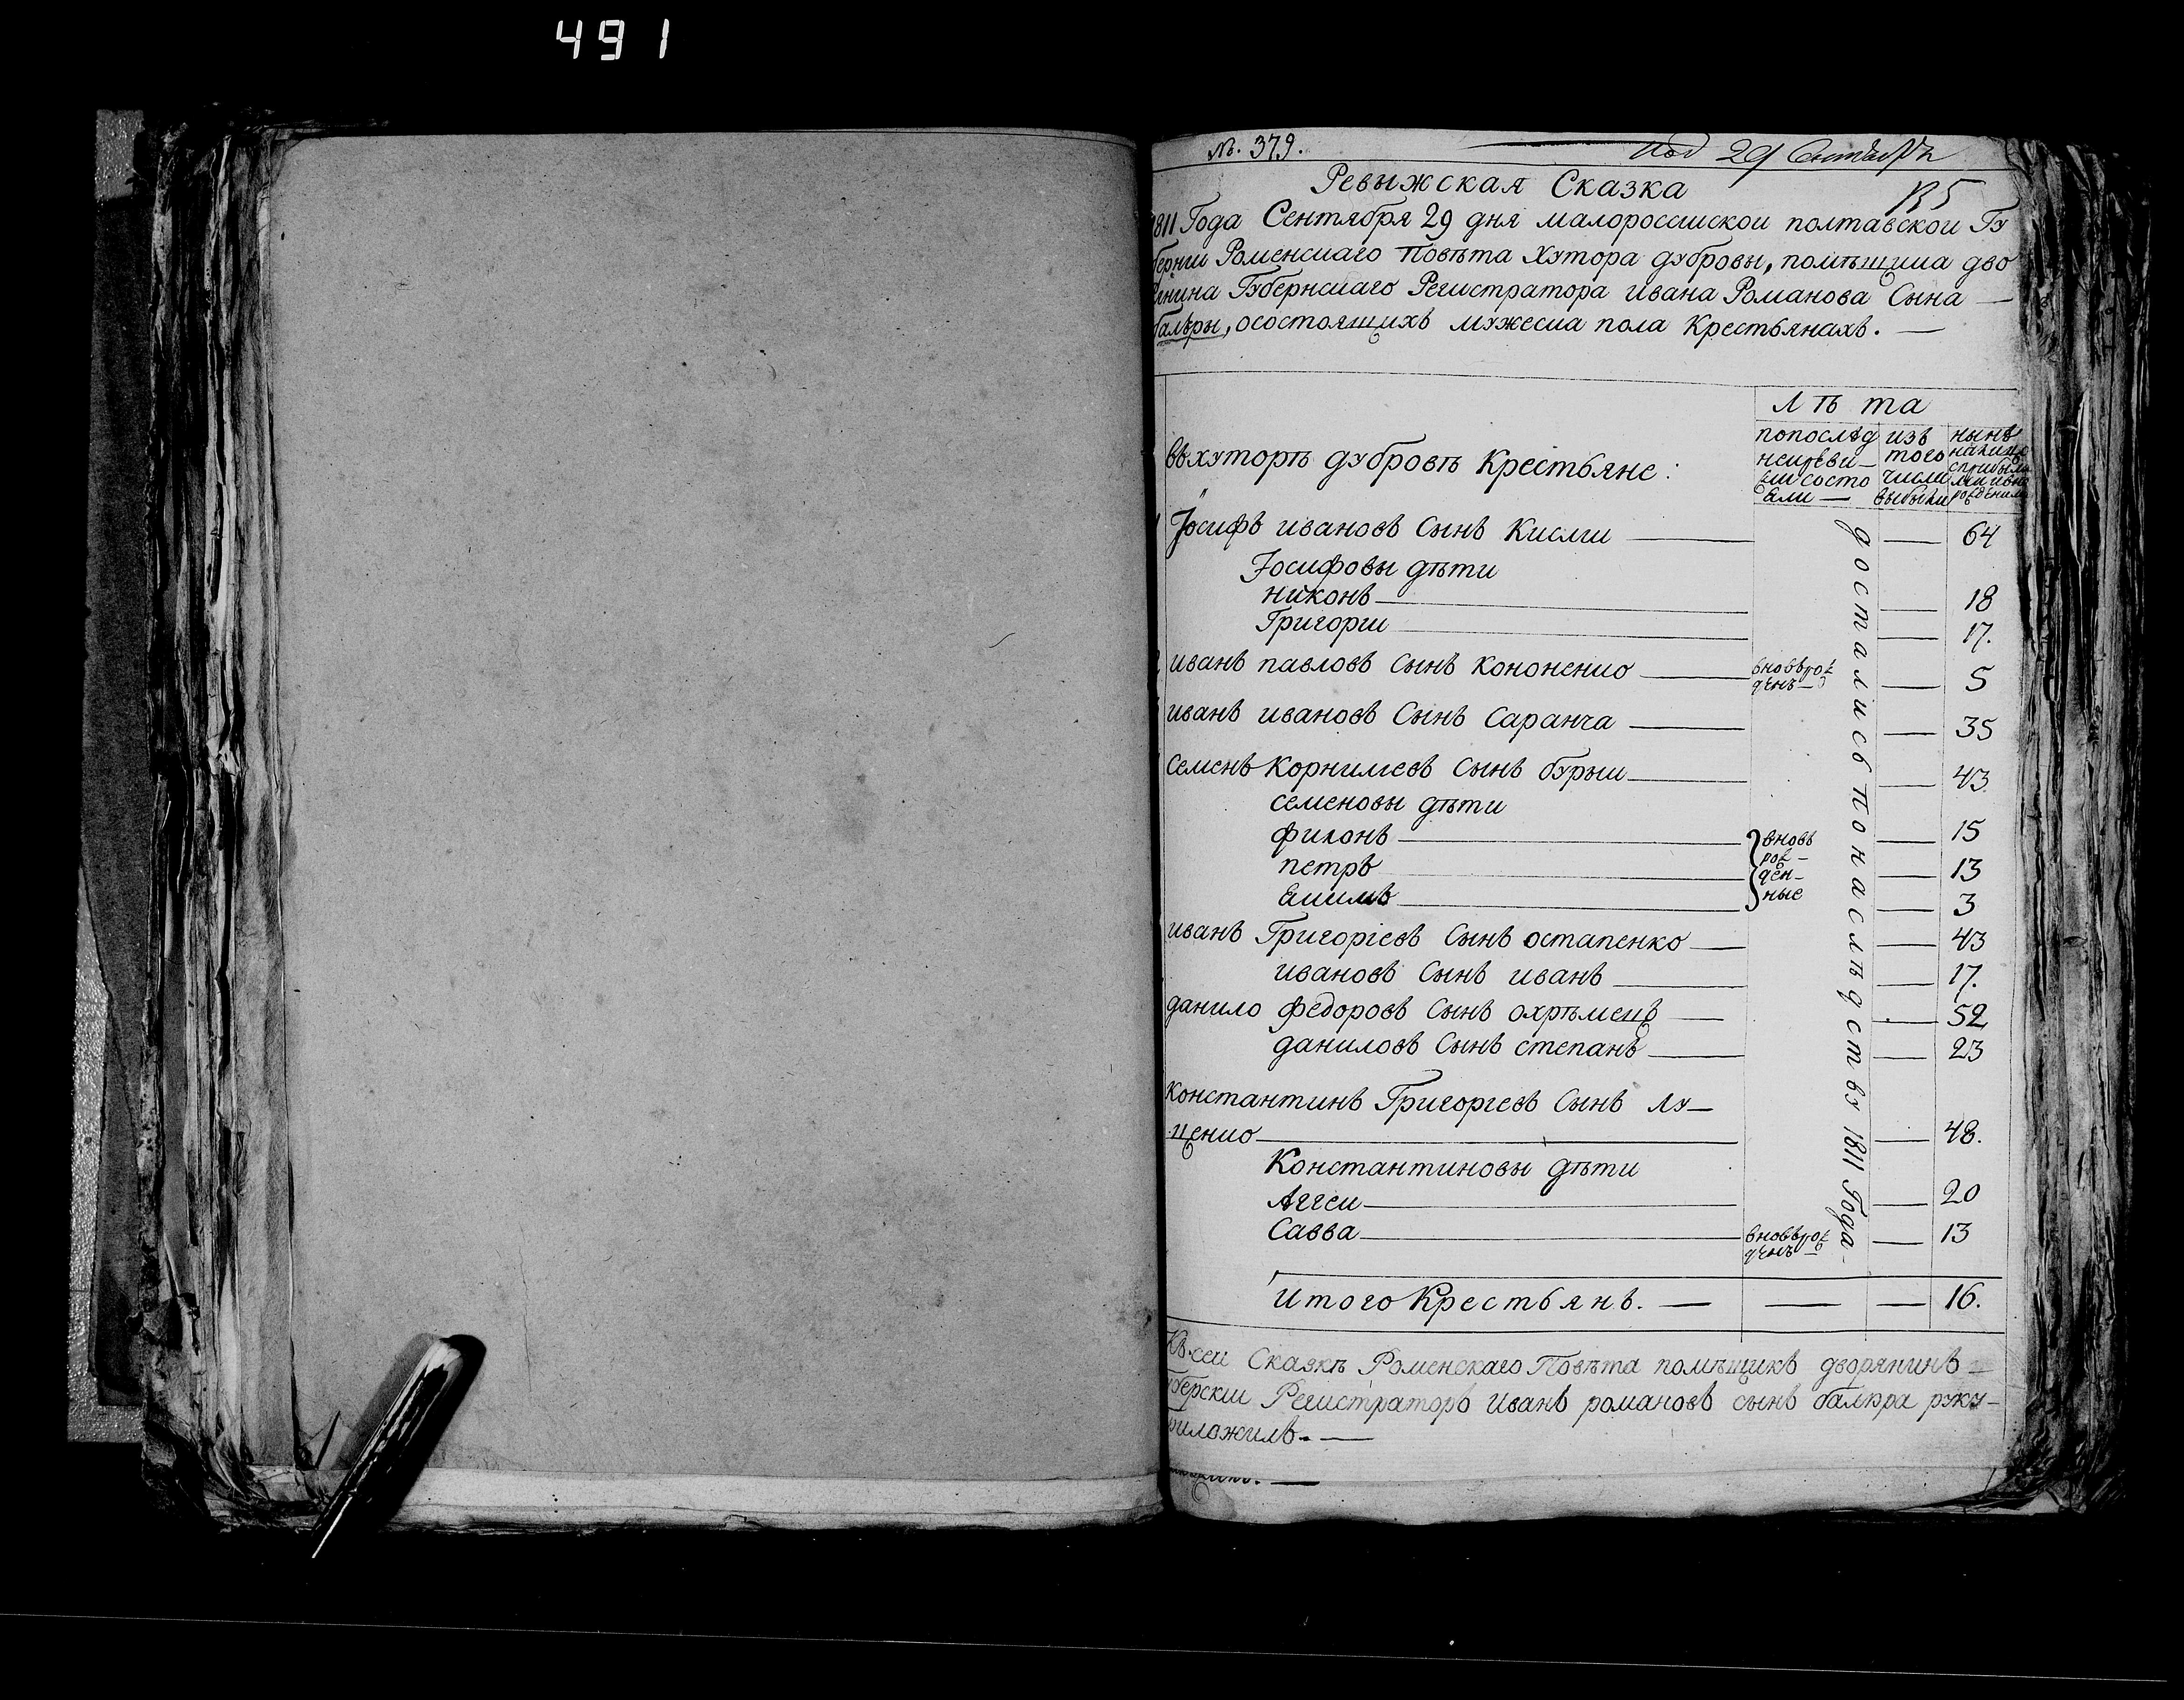 491
№. 379.
29
Ревыжская Сказка
1811 Года Сентября 29 дня малороссиискои полтавскои Гу
бернии Роменскаго Повѣта Хутора дубровы, помѣщика дво
рянина Губернскаго Регистратора ивана Романова Сына —
балѣры, осостоящихъ мужеска пола Крестьянахъ. —
лѣта
ввхуторѣ дубровѣ Крестьяне:
попослѣд
неиреви—
зии состо
яли —
изъ
того
числи
выбыли
нынѣ
Іосифъ ивановъ Сынъ Кислии — 64
Іосифовы дѣти
никонъ — 18
Григории — 17.
иванъ павловъ Сынъ кононенко — вновьрож
денъ — 5
иванъ ивановъ Сынъ Саранча — 35
семенъ Корнилиевъ Сынъ бурыи — 43
семеновы дѣти
филонъ — вновь — 15
петръ — рож—ден— — 13
Екимъ — ные — 3
иванъ Григоріевъ Сынъ остапенко — 43
ивановъ Сынъ иванъ — 17.
данило федоровъ Сынъ охрѣменъ — 52
даниловъ Сынъ степанъ — 23
константинъ Григоріевъ Сынъ лу—
ценко — 48.
Константиновы дѣти
Аггеи — 20
Савва — вновьрож
денъ — 13
досталисьпонаслѣдству 1811 Года
итого Крестьянъ. — — — 16.
Къ сеи Сказкѣ Роменскаго Повѣта помѣщикъ дворянинъ
уберскии Регистраторъ иванъ романовъ сынъ балѣра руку—
риложилъ. —